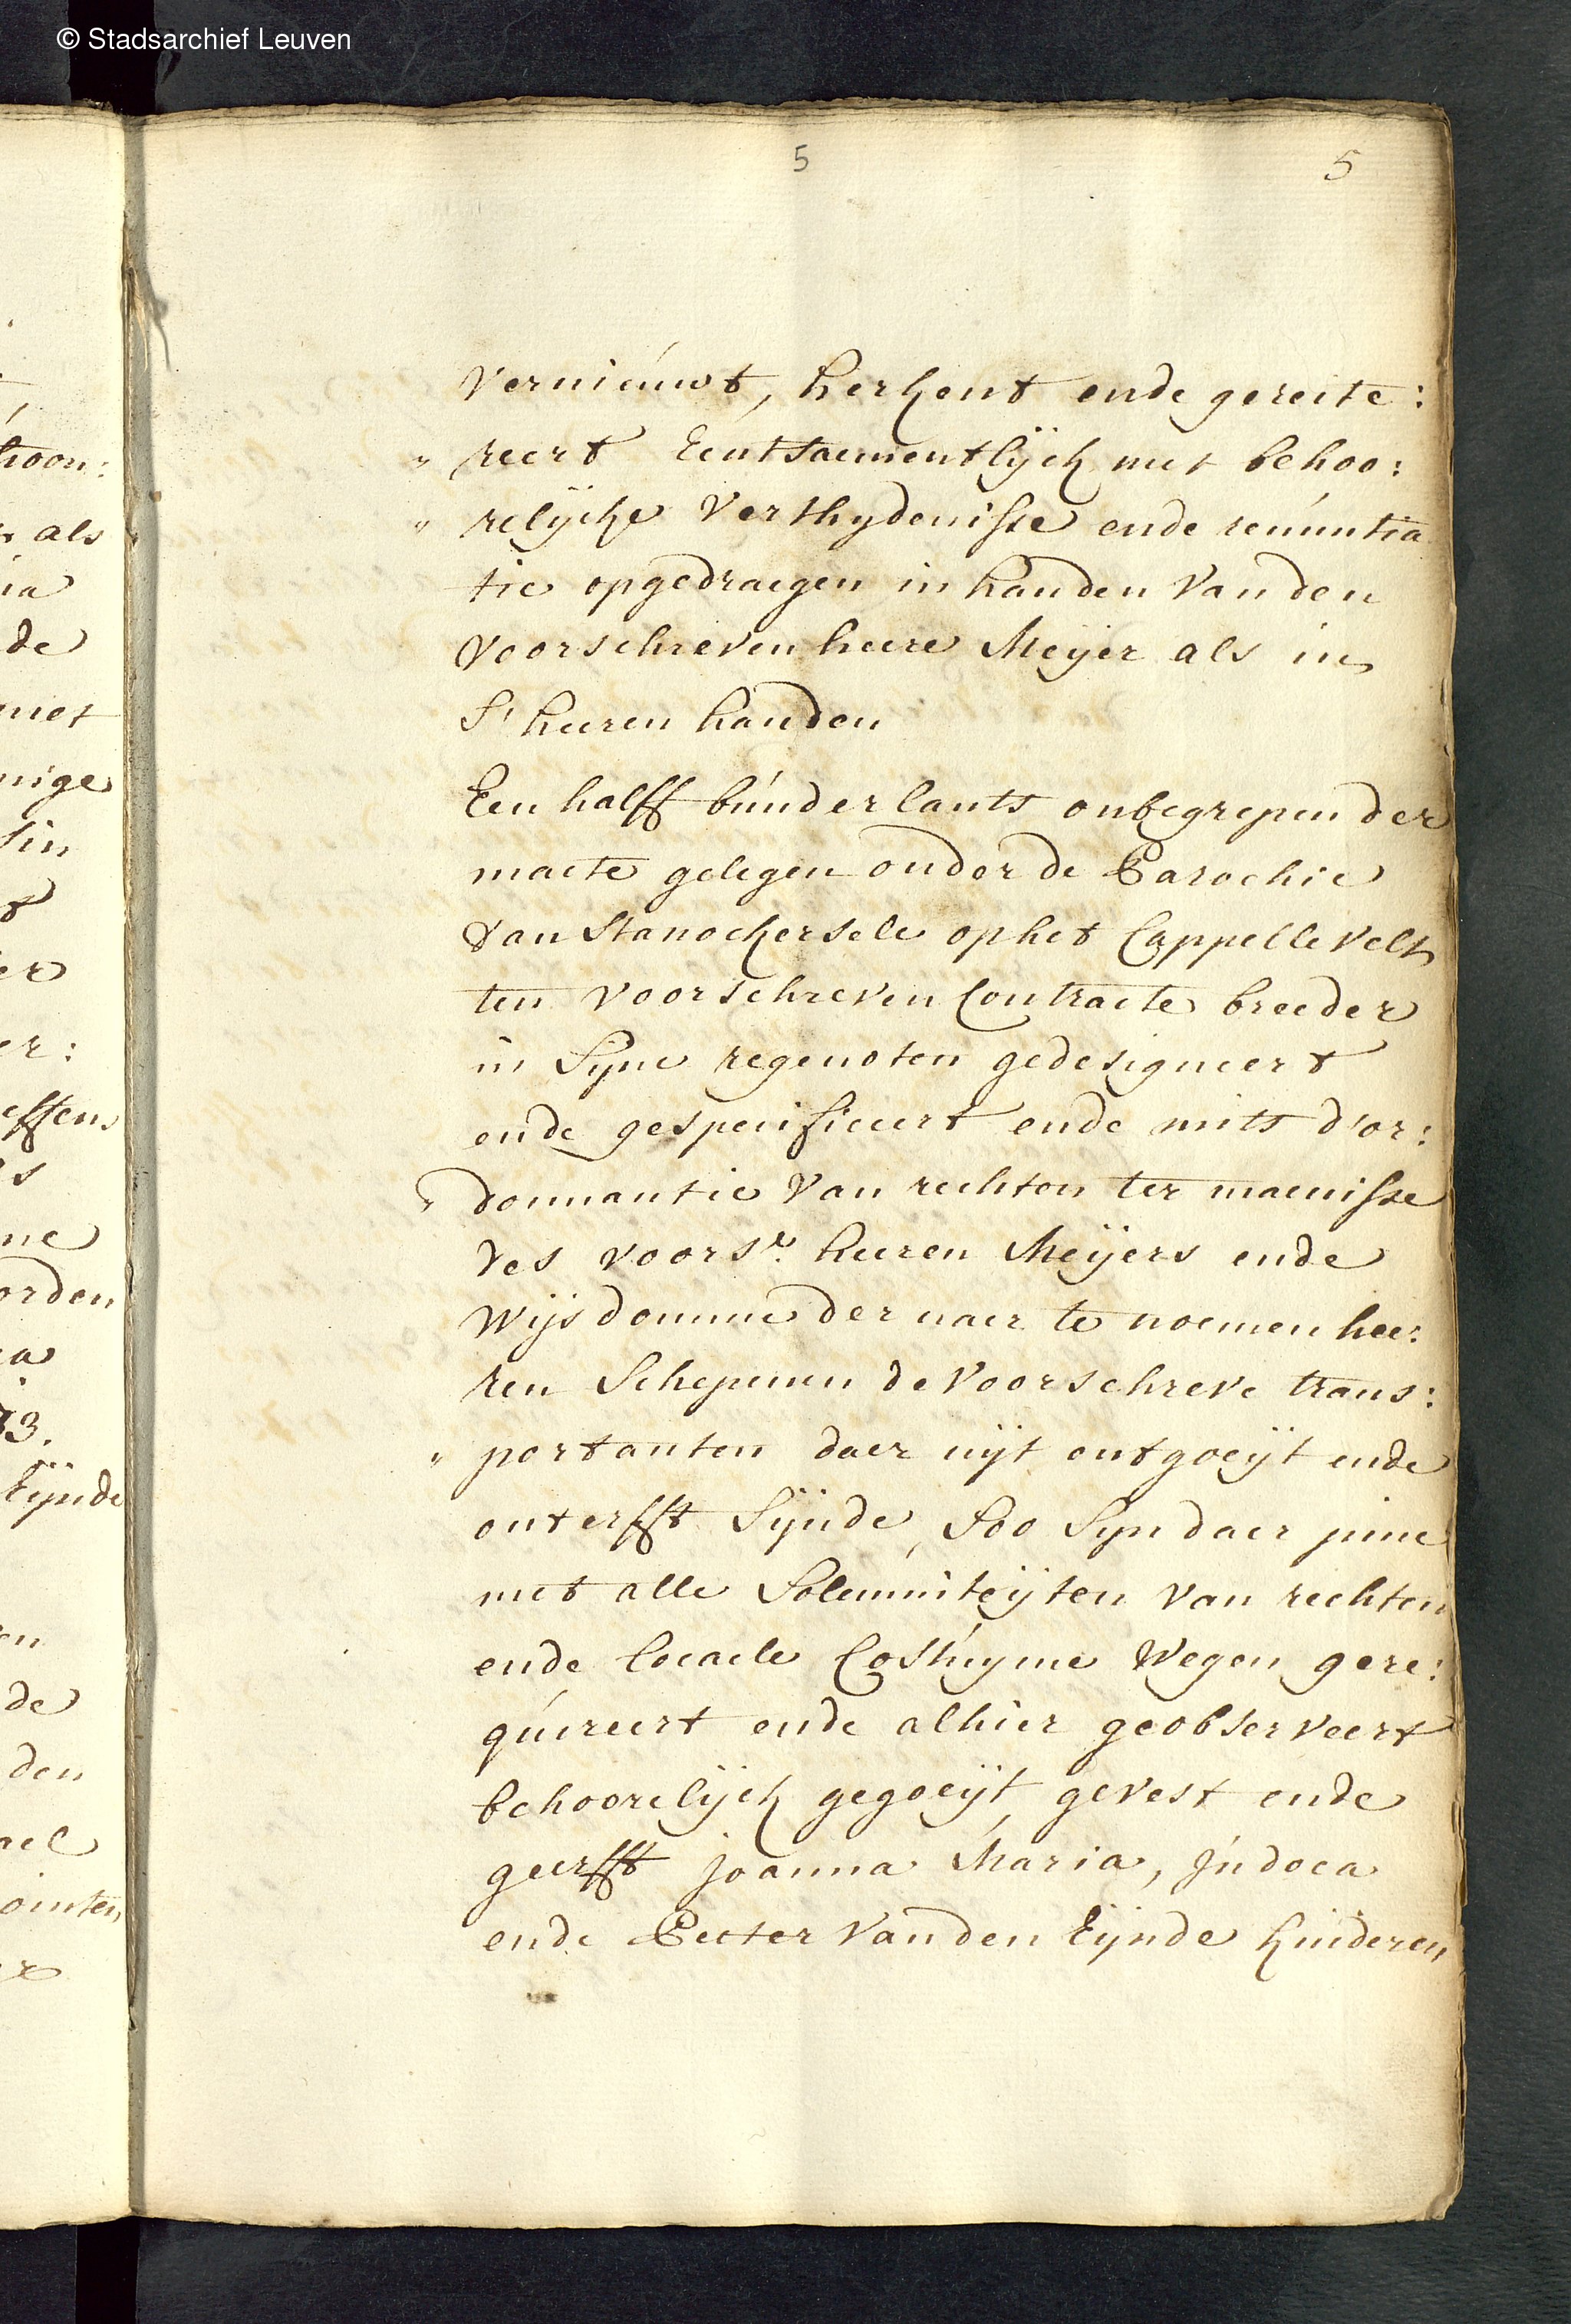 © Stadsarchief Leuven
5
5
vernieúwt, herkent ende gereite:
" reert Eentsaementlijck met behoo:
" relijcke verthydenisse ende renúntia
tie opgedraegen in handen van den
voorschreven heere Meijer als in
S'heeren handen
Een halff búnder lants onbegrepen der
maete gelegen onder de Parochie
van Stanockersele op het Cappelle velt
ten voorschreven Contracte breeder
in Syne regenoten gedesigneert
ende gespecificeert ende mits d'or:
" donnantie van rechten ter maenisse
des voors.e heeren Meijers ende
wijsdomme der naer te noemen hee:
ren Schepenen de voorschreve trans:
" portanten daer uijt ontgoeijt ende
onterfft Sijnde, Soo Syn daer inne
met alle Solemniteijten van rechten
ende locaele Costúyme wegen gere:
qúireert ende alhier geobserveert
behoorelijck gegoeijt, gevest ende
geerfft joanna Maria, Júdoca
ende Peeter vanden Eijnde kinderen
hoon:
als
de
met
nige
Sin
er
er:
effen
ne
orden
33.
Eijnde
en
de
den
ael
ointen